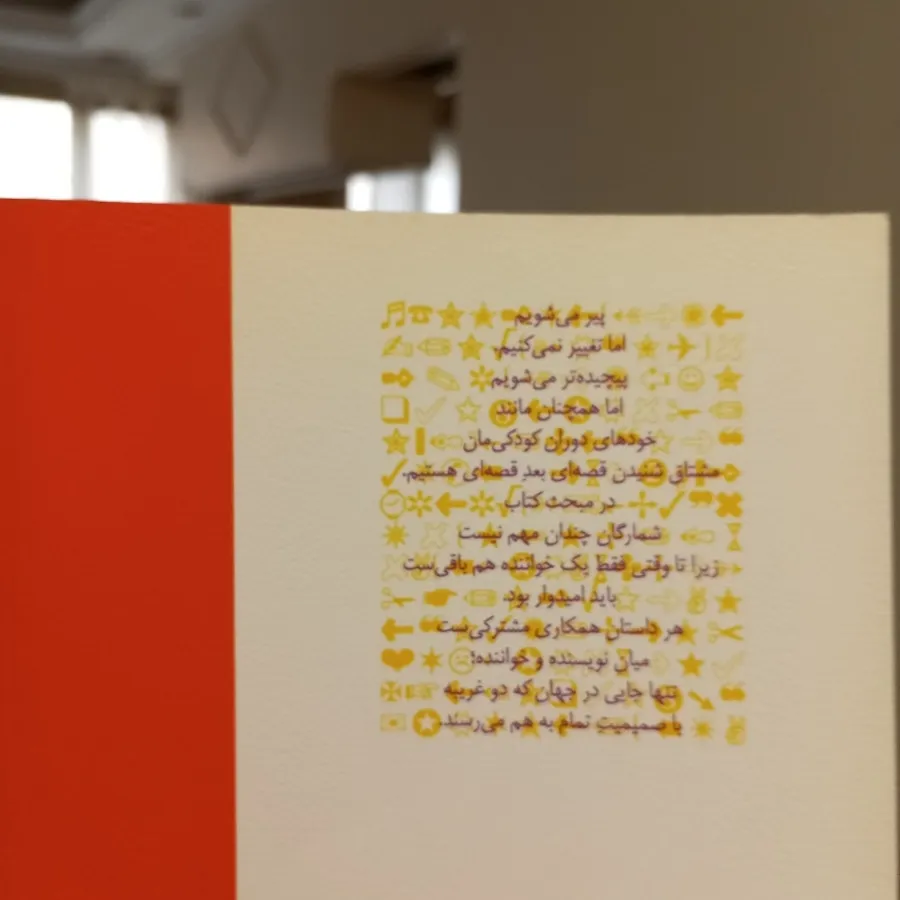 پیر می‌شویم
اما تغییر نمی‌کنیم.
پیچیده‌تر می‌شویم
اما همچنان مانند
خودهای دوران کودکی‌مان
مشتاق شنیدن قصه‌ای بعدِ قصه‌ای هستیم.
در مبحث کتاب
شمارگان چندان مهم نیست
زیرا تا وقتی فقط یک خواننده هم باقی‌ست
باید امیدوار بود.
هر داستان همکاری مشترکی‌ست
میان نویسنده و خواننده؛
تنها جایی در جهان که دو غریبه
با صمیمیتِ تمام به هم می‌رسند.